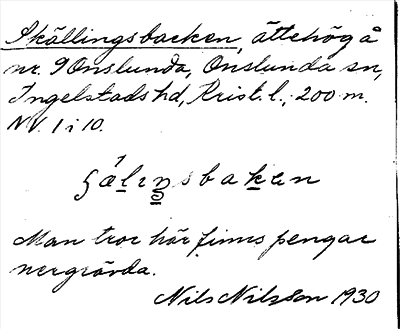 Skällingsbacken, ättehög å
nr. 9 Onslunda, Onslunda sn,
Ingelstads hd, Krist. l.; 200 m.
NV. 1 i 10.
ʂǽlıŋsbakan
Man tror här finns pengar
nergrävda.
Nils Nilsson 1930